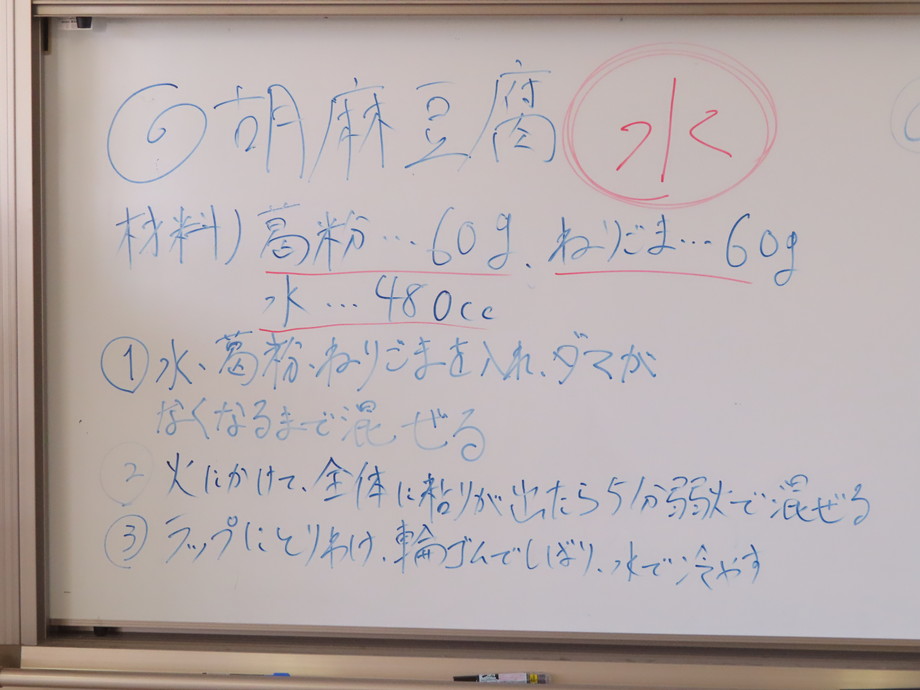 ⑥ 胡麻豆腐 水
材料) 葛粉…60g、ねりごま…60g
水…480cc
① 水、葛粉、ねりごまを入れ、ダマが
なくなるまで混ぜる
② 火にかけて、全体に粘りが出たら5分弱火で混ぜる
③ ラップにとりわけ、輪ゴムでしばり、水で冷やす